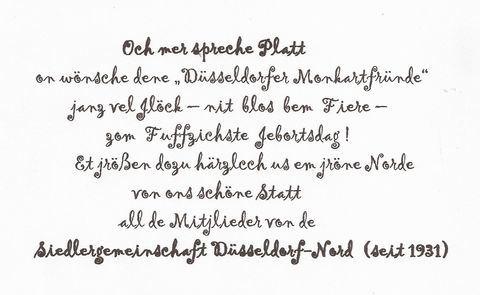 Och mer spreche Platt
on wönsche dene „Düsseldorfer Monkartfründe“
janz vel Jlöck – nit blos bem Fiere –
zom Fuffzichste Jebortsdag !
Et jrößen dozu härzlech us em jröne Norde
von ons schöne Statt
all de Mitjlieder von de
Siedlergemeinschaft Düsseldorf-Nord (seit 1931)